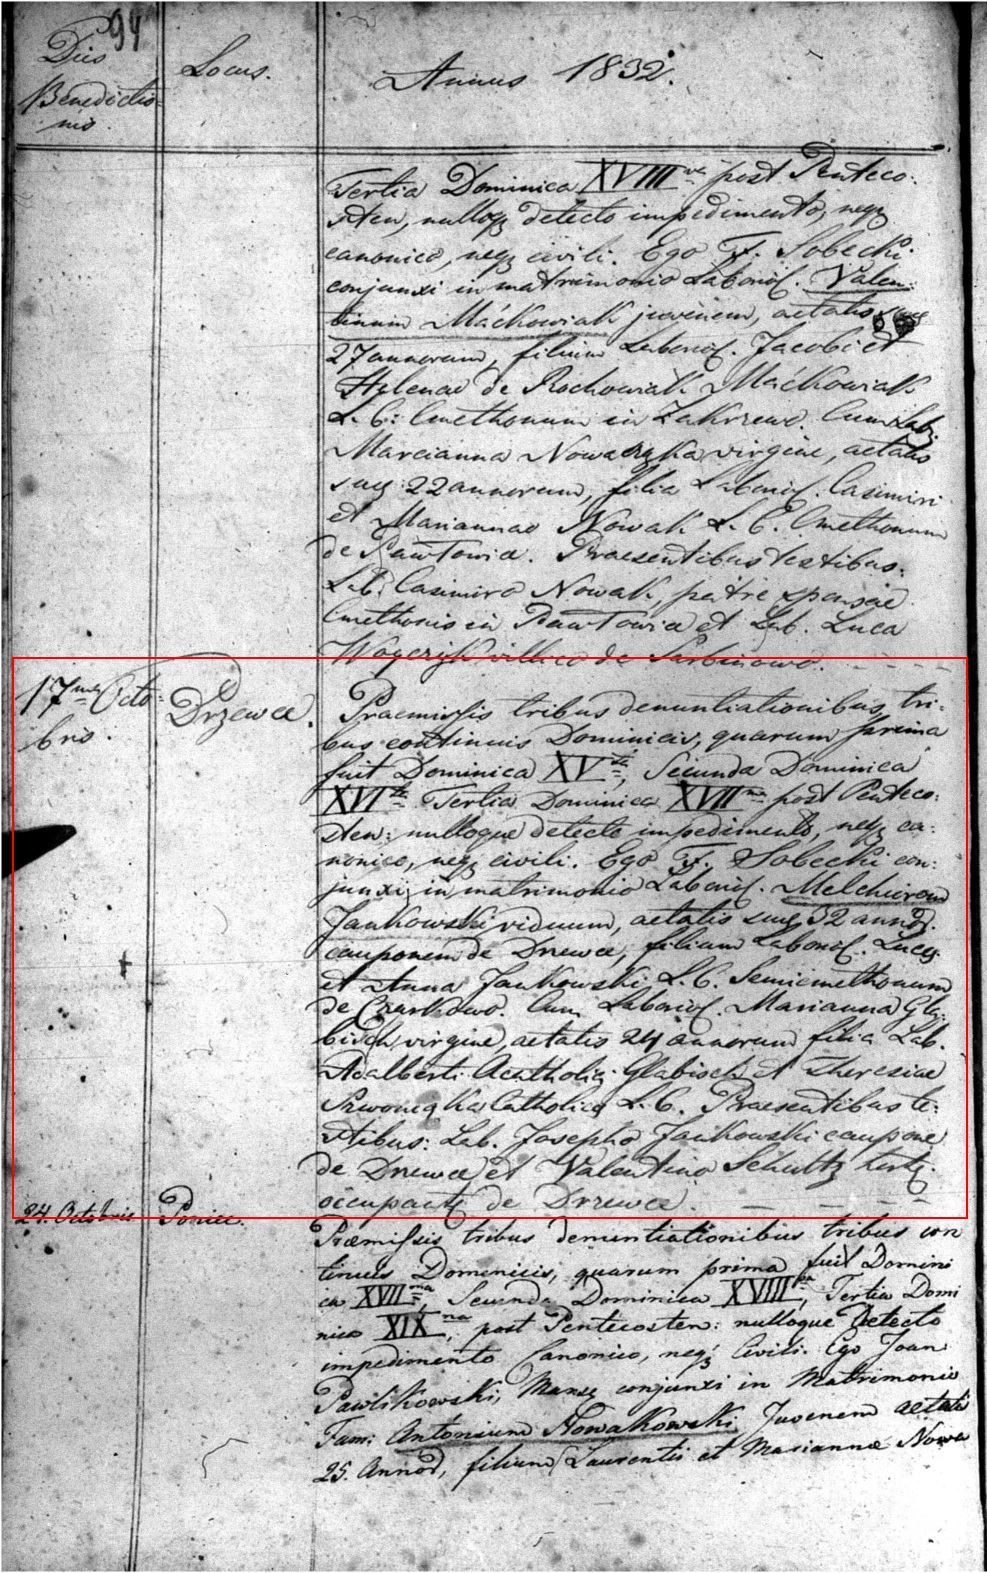 94
Dies
Benedictio
nis.
Locus.
Annus 1832.
Tertia Dominica XVIII va post Penteco:
sten, nulloq detecto impedimento, neq
canonico, neq civili. Ego F. Sobecki
conjunxi in matrimonio Laborios. Valen:
tinum Maćkowiak juvenem, aetatis suae
27 annorum, filium Laborios. Jacobi et
Helenae de Rochowiak Maćkowiak
L. C: Cmethonum in Zakrzewo. Cum Lab:
Marcianna Nowaczka virgine, aetatis
suae 22 annorum, filia Laborios. Casimiri
et Mariannae Nowak L. C. Cmethonum
de Pawłowice. Praesentibus testibus:
Lab. Casimiro Nowak, patre sponsae
Cmethonis in Pawłowice et Lab. Luca
villico de Sarbinowo.
17 ma Octo:
bris.
Drzewce.
Praemissis tribus denuntiationibus, tri:
bus continuis Dominicis, quarum prima
fuit Dominica XV ta, Secunda Dominica
XVI ta Tertia Dominica XVII ma post Penteco:
sten: nulloque detecto impedimento, neq ca:
nonico, neq civili. Ego F. Sobecki con:
junxi in matrimonio Laborios. Melchiorem
Jankowski viduum, aetatis suae 32 annor.
cauponem de Drzewce, filium Laborios. Lucae
et Anna Jankowski L. C. Semicmethonum
de Czarkowo. Cum Laborios. Marianna Gla:
bisch virgine, aetatis 24 annorum filia Lab.
Adalberti Acatholici Glabisch et Theresiae
Catholica L. C. Praesentibus te:
stibus: Lab. Josepho Jankowski caupone
de Drzewce et Valentino Schultz
de Drzewce.
24. Octobris
Poniec.
Præmissis tribus denuntiationibus tribus con
tinuis Domenicis, quarum prima fuit Domini
ca XVII ma, Secunda Dominica XVIII va, Tertia Domi
nica XIX na, post Pentecosten: nulloque Detecto
impedimento Canonico, neq Civili. Ego Joan:
Pawlikowski, Mans conjunxi in Matrimonio
Fam: Antonium Nowakowski Juvenem aetatis
25. Annor, filium Laurentii et Mariannæ Nowa